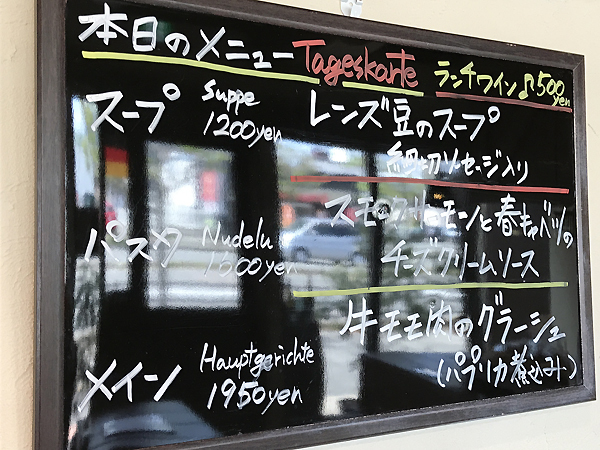 本日のメニュー Tageskarte ランチワイン♪500yen
スープ Suppe 1200yen
レンズ豆のスープ
細切りソーセージ入り
パスタ Nudeln 1600yen
スモークサーモンと春キャベツの
チーズクリームソース
メイン Hauptgerichte 1950yen
牛モモ肉のグラーシュ
(パプリカ煮込み)